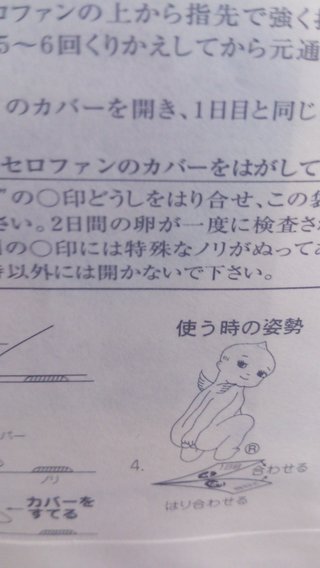 ロファンの上から指先で強く
5〜6回くりかえしてから元通
のカバーを開き、1日目と同じ
セロファンのカバーをはがして
"の○印どうしをはり合せ、この袋
さい。2日間の卵が一度に検査さ
の○印には特殊なノリがぬってあ
以外には開かないで下さい。
使う時の姿勢
バー
ノリ
カバーを
すてる
4.
®
合わせる
はり合わせる